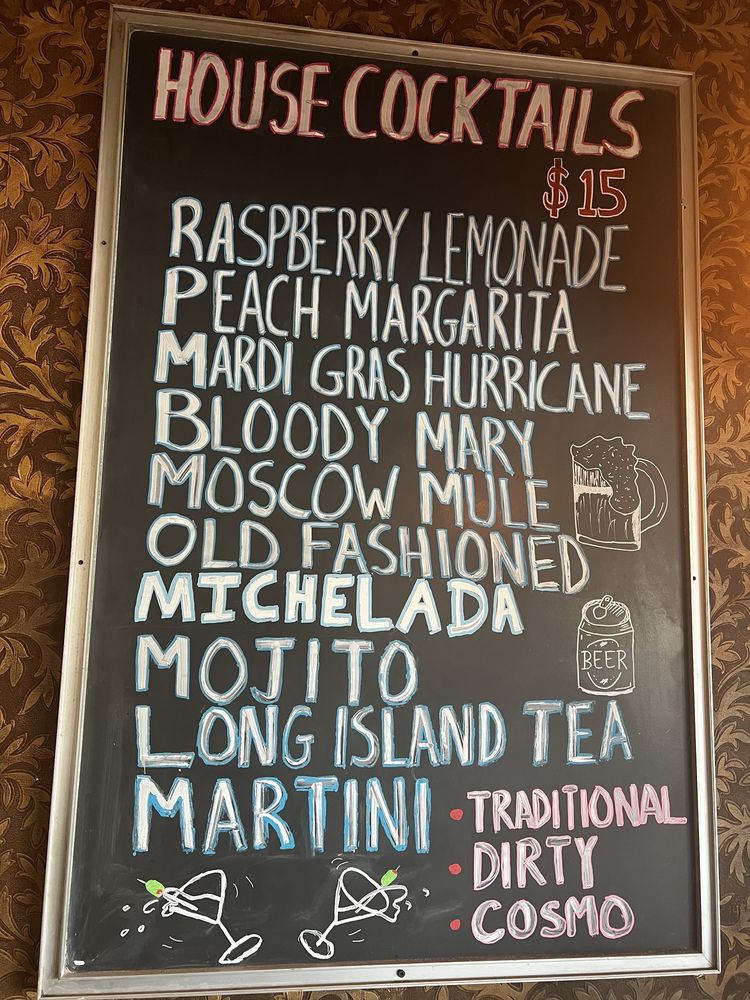 HOUSE COCKTAILS
$15
RASPBERRY LEMONADE
PEACH MARGARITA
MARDI GRAS HURRICANE
BLOODY MARY
MOSCOW MULE
OLD FASHIONED
MICHELADA
BEER
MOJITO
LONG ISLAND TEA
MARTINI
• TRADITIONAL
• DIRTY
• COSMO